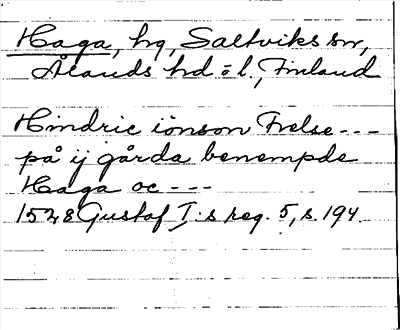 Haga, hg, Saltviks sn,
Ålands hd o l., Finland
Hindric iönson Frelse ---
på ij gårda benempde
Haga oc ---
1528 Gustaf I:s reg. 5, s. 194